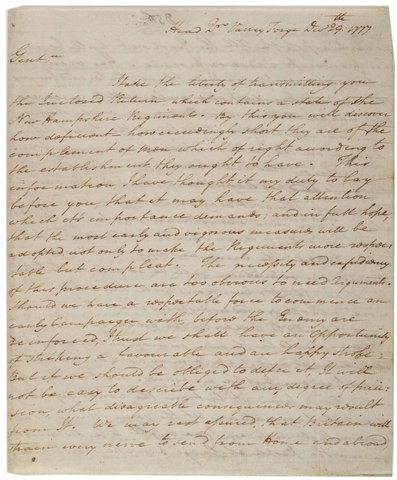 Head Qrs Valley Forge Decr 29th 1777
Gent.
I take the liberty of transmitting you
the Inclosed Return which contains a state of the
New Hampshire Regiments. By this you will discover
how deficient how exceedingly short they are of the
complement of Men which of right according to
the establishment they ought to have. This
information I have thought it my duty to lay
before you that it may have that attention
which its importance demands, and in full hope,
that the most early and vigorous measures will be
adopted not only to make the Regiments more respec-
table but compleat. The necessity and expediency
of this procedure are too obvious to need Arguments.
Should we have a respectable force to commence an
early Campaign with before the Enemy are
reinforced, I trust we shall have an Opportunity
of striking a favourable and an happy stroke:
But if we should be obliged to defer it It will
not be easy to describe with any degree of preci-
sion, what disagreable consequences may result
from It. We may rest assured that Britain will
strain every nerve to send from Home and abroad